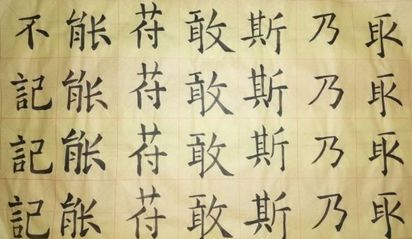 取取取取
乃乃乃乃
斯斯斯斯
敢敢敢敢
苻苻苻苻
能能能能
不記記記